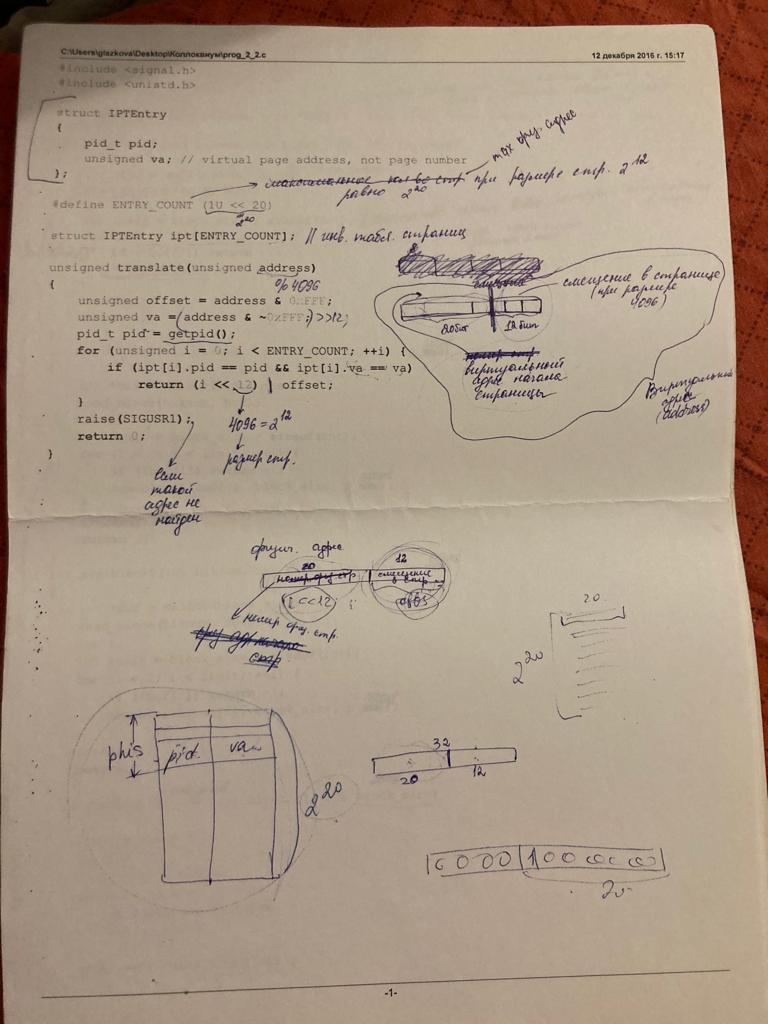 C:\Users\glazkova\Desktop\Коллоквиум\prog_2_2.c 12 декабря 2016 г. 15:17
#include <signal.h>
#include <unistd.h>
struct IPTEntry
{
pid_t pid;
unsigned va; // virtual page address, not page number
};
max физ. адрес
равно 2^20 при размере стр. 2^12
#define ENTRY_COUNT (1U << 20)
2^20
struct IPTEntry ipt[ENTRY_COUNT]; // инв. табл. страниц
unsigned translate(unsigned address)
{
% 4096
unsigned offset = address & 0xFFF;
unsigned va = (address & ~0xFFF;) >>12;
pid_t pid = getpid();
for (unsigned i = 0; i < ENTRY_COUNT; ++i) {
if (ipt[i].pid == pid && ipt[i].va == va)
return (i << 12) | offset;
}
raise(SIGUSR1);
return 0;
}
смещение в странице
(при размере
4096)
20бит 12 бит
виртуальный
адрес начала
страницы
Виртуальный
адрес
(address)
4096 = 2^12
размер стр.
если
такой
адрес не
найден
физич. адрес
20 12
номер физ стр смещение
в стр.
i<<12
номер физ. стр.
20
2^20
phis
pid va
2^20
32
20 12
20
-1-